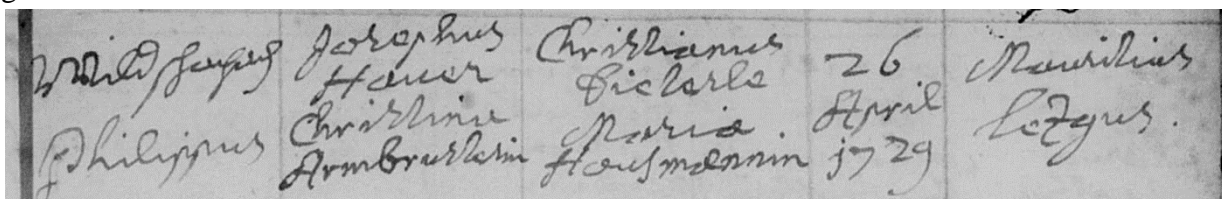 Wildschapach
Philippus
Josephus
Hauer
Christina
Armbrusterin
Christianus
Dieterle
Maria
Hausmännin
26
April
1729
Mauritius